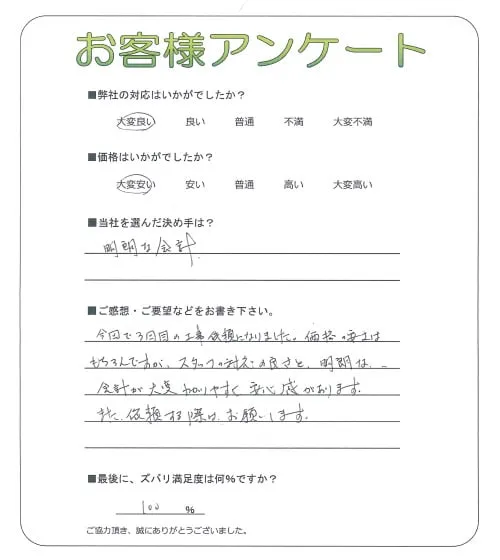 お客様アンケート
■弊社の対応はいかがでしたか？
大変良い 良い 普通 不満 大変不満
■価格はいかがでしたか？
大変安い 安い 普通 高い 大変高い
■当社を選んだ決め手は？
明朗な会計
■ご感想・ご要望などをお書き下さい。
今回で3回目の工事依頼になりました。価格の安さは
もちろんですが、スタッフの対応の良さと、明朗な
会計が大変わかりやすく安心感があります。
また、依頼する際は、お願いします。
■最後に、ズバリ満足度は何%ですか？
100 %
ご協力頂き、誠にありがとうございました。